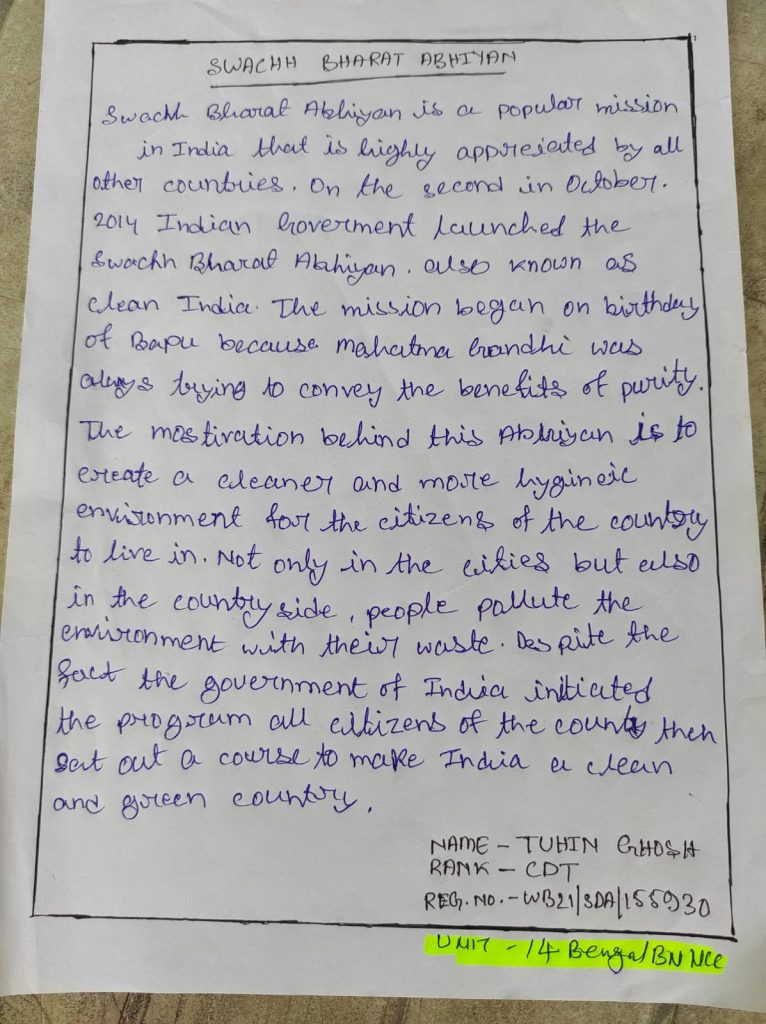 SWACHH BHARAT ABHIYAN
Swachh Bharat Abhiyan is a popular mission
in India that is highly appreieted by all
other countries. On the second in October.
2014 Indian Goverment launched the
Swachh Bharat Abhiyan. also known as
clean India. The mission began on birthday
of Bapu because mahatma Grandhi was
always trying to convey the benefits of purity.
The mostivation behind this Abhiyan is to
create a cleaner and more hygineic
environment for the citizens of the country
to live in. Not only in the cities but also
in the country side, people pollute the
environment with their waste. Despite the
fact the government of India initiated
the program all citizens of the county then
sat out a course to make India a clean
and green country.
NAME - TUHIN GHOSH
RANK - CDT
REG. NO. - WB21/SDA/155930
UNIT - 14 Bengal BN NCC